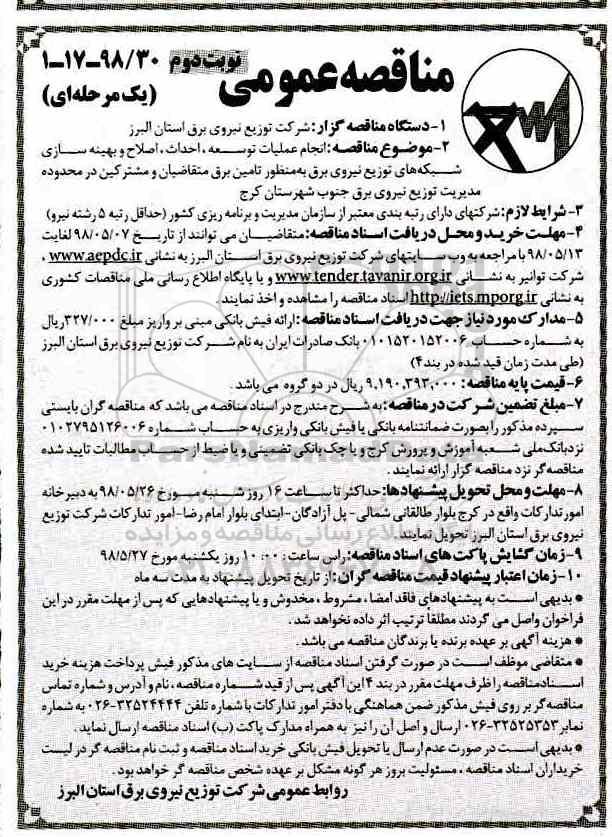 مناقصه عمومی نوبت دوم ۹۸/۳۰-۱۷-۱
(یک مرحله‌ای)
۱-دستگاه مناقصه گزار: شرکت توزیع نیروی برق استان البرز
۲-موضوع مناقصه: انجام عملیات توسعه ، احداث ، اصلاح و بهینه سازی
شبکه‌های توزیع نیروی برق به‌منظور تامین برق متقاضیان و مشترکین در محدوده
مدیریت توزیع نیروی برق جنوب شهرستان کرج
۳-شرایط لازم: شرکتهای دارای رتبه بندی معتبر از سازمان مدیریت و برنامه ریزی کشور (حداقل رتبه ۵ رشته نیرو)
۴-مهلت خرید و محل دریافت اسناد مناقصه: متقاضیان می توانند از تاریخ ۹۸/۰۵/۰۷ لغایت
۹۸/۰۵/۱۳ با مراجعه به وب سایتهای شرکت توزیع نیروی برق استان البرز به نشانی www.aepdc.ir ،
شرکت توانیر به نشانی www.tender.tavanir.org.ir و یا پایگاه اطلاع رسانی ملی مناقصات کشوری
به نشانی http://iets.mporg.ir اسناد مناقصه را مشاهده و اخذ نمایند.
۵-مدارک مورد نیاز جهت دریافت اسناد مناقصه: ارائه فیش بانکی مبنی بر واریز مبلغ ۳۲۷/۰۰۰ ریال
به شماره حساب ۰۱۰۱۵۲۰۱۵۲۰۰۶ بانک صادرات ایران به نام شرکت توزیع نیروی برق استان البرز
(طی مدت زمان قید شده در بند ۴)
۶-قیمت پایه مناقصه: ۹,۱۹۰,۳۹۳,۰۰۰ ریال در دو گروه می باشد .
۷-مبلغ تضمین شرکت در مناقصه: به شرح مندرج در اسناد مناقصه می باشد که مناقصه گران بایستی
سپرده مذکور را بصورت ضمانتنامه بانکی یا فیش بانکی واریزی به حساب شماره ۰۱۰۲۷۹۵۱۲۶۰۰۶
نزد بانک ملی شعبه آموزش و پرورش کرج و یا چک بانکی تضمینی و یا ضبط از حساب مطالبات تایید شده
مناقصه گر نزد مناقصه گزار ارائه نمایند .
۸-مهلت و محل تحویل پیشنهادها: حداکثر تا ساعت ۱۶ روز شنبه مورخ ۹۸/۰۵/۲۶ به دبیرخانه
امور تدارکات واقع در کرج بلوار طالقانی شمالی- پل آزادگان-ابتدای بلوار امام رضا-امور تدارکات شرکت توزیع
نیروی برق استان البرز تحویل نمایند.
۹-زمان گشایش پاکت های اسناد مناقصه: راس ساعت ۱۰:۰۰ روز یکشنبه مورخ ۹۸/۵/۲۷
۱۰-زمان اعتبار پیشنهاد قیمت مناقصه گران: از تاریخ تحویل پیشنهاد به مدت سه ماه
● بدیهی است به پیشنهادهای فاقد امضا ، مشروط ، مخدوش و یا پیشنهادهایی که پس از مهلت مقرر در این
فراخوان واصل می گردند مطلقاً ترتیب اثر داده نخواهد شد .
● هزینه آگهی بر عهده برنده یا برندگان مناقصه می باشد .
● متقاضی موظف است در صورت گرفتن اسناد مناقصه از سایت های مذکور فیش پرداخت هزینه خرید
اسناد مناقصه را ظرف مهلت مقرر در بند ۴ این آگهی پس از قید شماره مناقصه ، نام و آدرس و شماره تماس
مناقصه گر بر روی فیش مذکور ضمن هماهنگی با دفتر امور تدارکات با شماره تلفن ۳۲۵۲۴۴۴۴-۰۲۶ به شماره
نمابر ۳۲۵۲۵۳۵۳-۰۲۶ ارسال و اصل آن را نیز به همراه مدارک پاکت (ب) اسناد مناقصه ارسال نماید .
● بدیهی است در صورت عدم ارسال یا تحویل فیش بانکی خرید اسناد مناقصه و ثبت نام مناقصه گر در لیست
خریداران اسناد مناقصه ، مسئولیت بروز هر گونه مشکل بر عهده شخص مناقصه گر خواهد بود .
روابط عمومی شرکت توزیع نیروی برق استان البرز